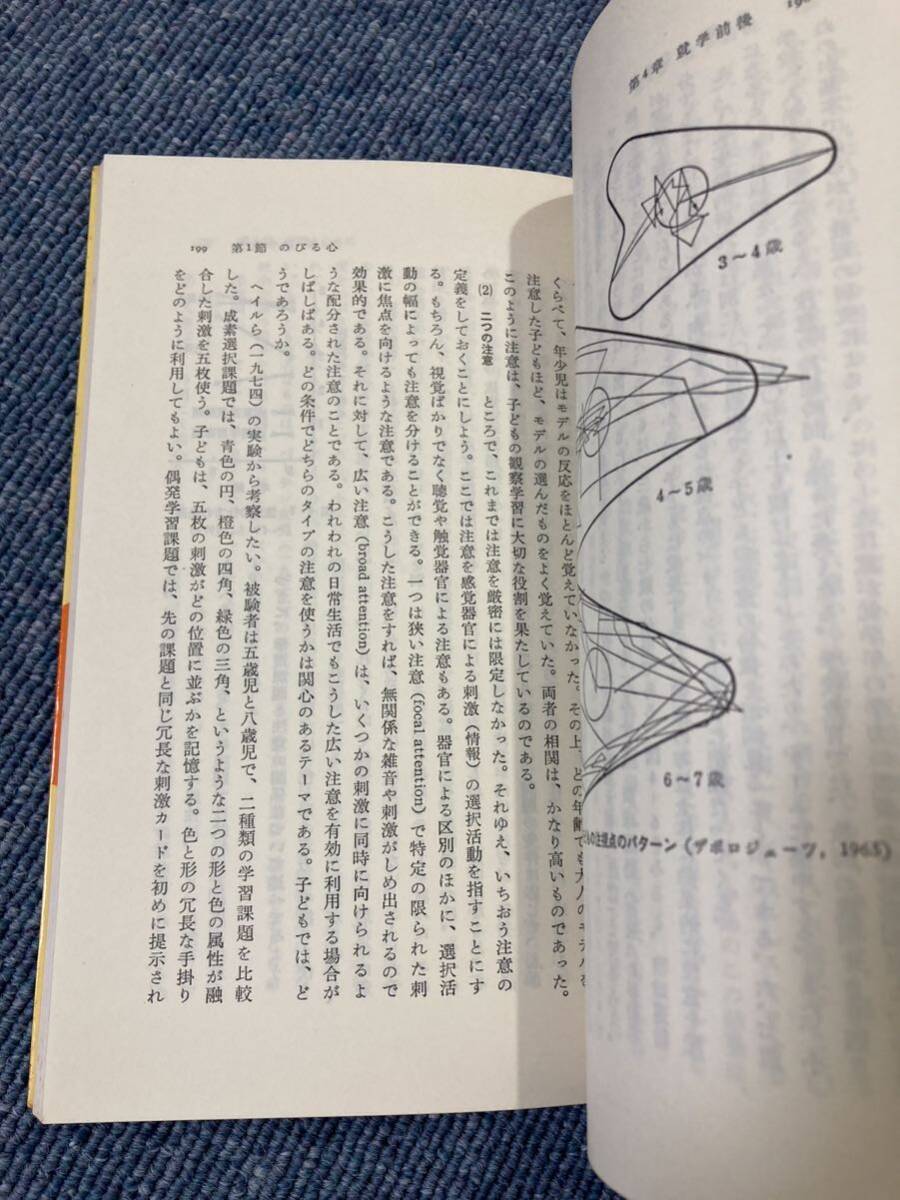 第4章 就学前後
3〜4歳
4〜5歳
6〜7歳
の注視点のパターン（ザポロジェーツ，1965）
199　第1節　のびる心
くらべて、年少児はモデルの反応をほとんど覚えていなかった。その上、どの年齢でも大人のモデルを
注意した子どもほど、モデルの選んだものをよく覚えていた。両者の相関は、かなり高いものであった。
このように注意は、子どもの観察学習に大切な役割を果たしているのである。
(2)　二つの注意　ところで、これまでは注意を厳密には限定しなかった。それゆえ、いちおう注意の
定義をしておくことにしよう。ここでは注意を感覚器官による刺激（情報）の選択活動を指すことにす
る。もちろん、視覚ばかりでなく聴覚や触覚器官による注意もある。器官による区別のほかに、選択活
動の幅によっても注意を分けることができる。一つは狭い注意（focal attention）で特定の限られた刺
激に焦点を向けるような注意である。こうした注意をすれば、無関係な雑音や刺激がしめ出されるので
効果的である。それに対して、広い注意（broad attention）は、いくつかの刺激に同時に向けられるよ
うな配分された注意のことである。われわれの日常生活でもこうした広い注意を有効に利用する場合が
しばしばある。どの条件でどちらのタイプの注意を使うかは関心のあるテーマである。子どもでは、ど
うであろうか。
ヘイルら（一九七四）の実験から考察したい。被験者は五歳児と八歳児で、二種類の学習課題を比較
した。成素選択課題では、青色の円、橙色の四角、緑色の三角、というような二つの形と色の属性が融
合した刺激を五枚使う。子どもは、五枚の刺激がどの位置に並ぶかを記憶する。色と形の冗長な手掛り
をどのように利用してもよい。偶発学習課題では、先の課題と同じ冗長な刺激カードを初めに提示され